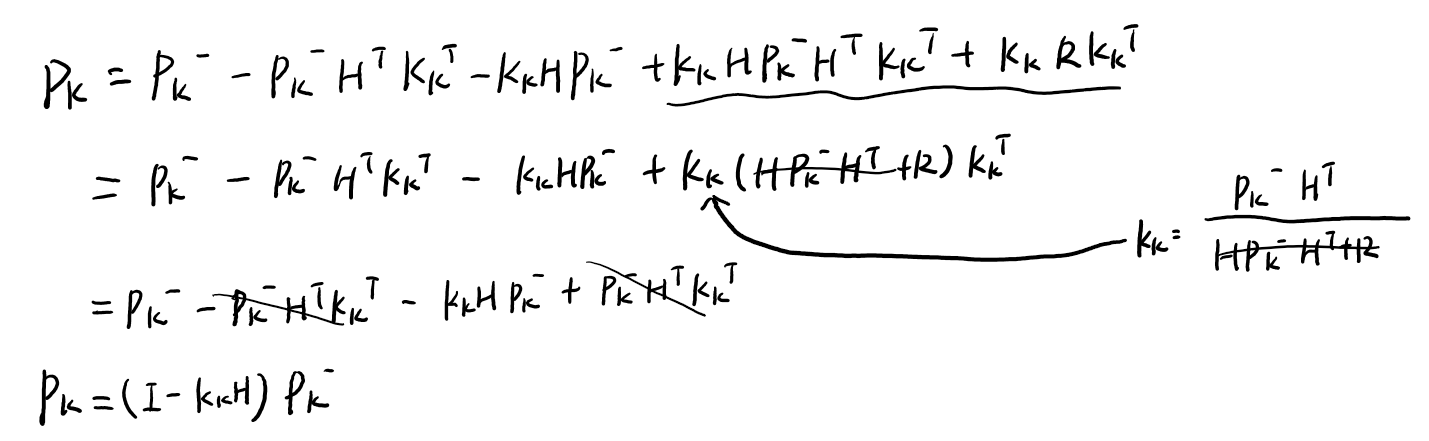 P_k = P_k^- - P_k^- H^T K_k^T - K_k H P_k^- + K_k H P_k^- H^T K_k^T + K_k R K_k^T
= P_k^- - P_k^- H^T K_k^T - K_k H P_k^- + K_k (H P_k^- H^T + R) K_k^T
K_k = \frac{P_k^- H^T}{H P_k^- H^T + R}
= P_k^- - P_k^- H^T K_k^T - K_k H P_k^- + P_k^- H^T K_k^T
P_k = (I - K_k H) P_k^-